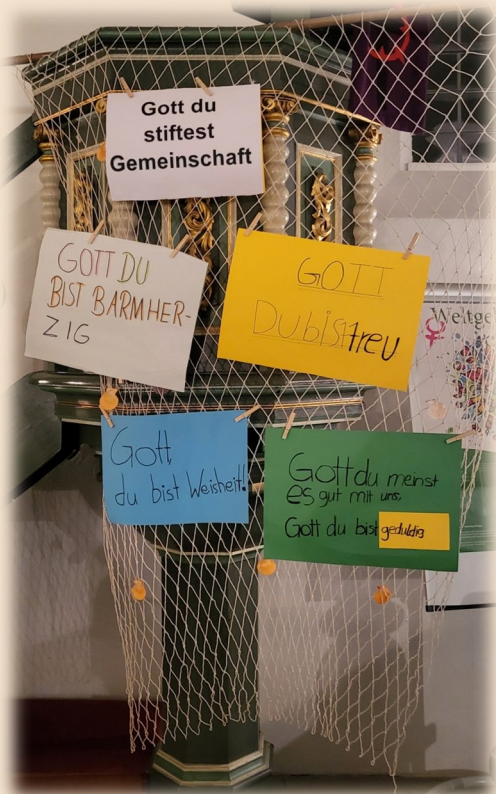 Gott du
stiftest
Gemeinschaft
GOTT DU
BIST BARMHER-
ZIG
GOTT
Du bist treu
Gott,
du bist Weisheit!
Gott du meinst
es gut mit uns,
Gott du bist geduldig
Weltge